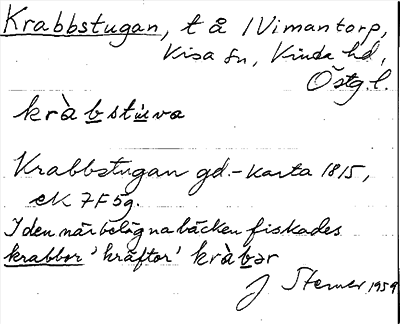 Krabbstugan, t å /Vimantorp,
Kisa sn, Kinda hd,
Östg. l.
kràbstuva
Krabbstugan gd.- Karta 1815,
ek 7F5g.
I den närbelägna bäcken fiskades
krabbor 'kräftor' kràbər
J Sterner 1959